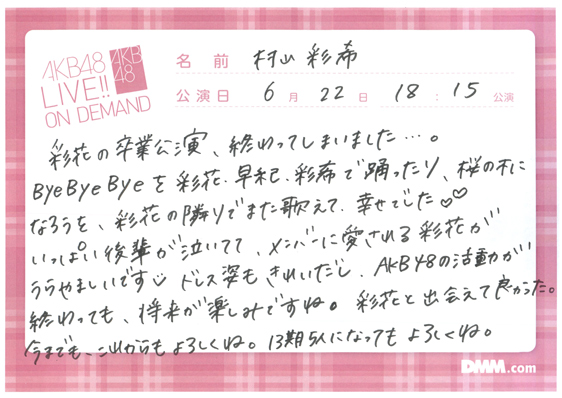 AKB48
LIVE!!
ON DEMAND
AKB
48
名 前 村山 彩希
公演日 6月 22日 18:15 公演
彩花の卒業公演、終わってしまいました…。
ByeByeByeを彩花、早紀、彩希で踊ったり、桜の木に
なろうを、彩花の隣りでまた歌えて、幸せでした♡♡
いっぱい後輩が泣いてて、メンバーに愛される彩花が
うらやましいです ドレス姿もきれいだし、AKB48の活動が
終わっても、将来が楽しみですね。彩花と出会えて良かった。
今までも、これからもよろしくね。13期5人になってもよろしくね。
DMM.com